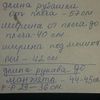 длина рубашки
от плеча - 67см
ширина от плеча до
плеча - 40см
ширина под мышка
ми - 42см
длина рукава до
манжета - 44-45см
р-р 29-36см